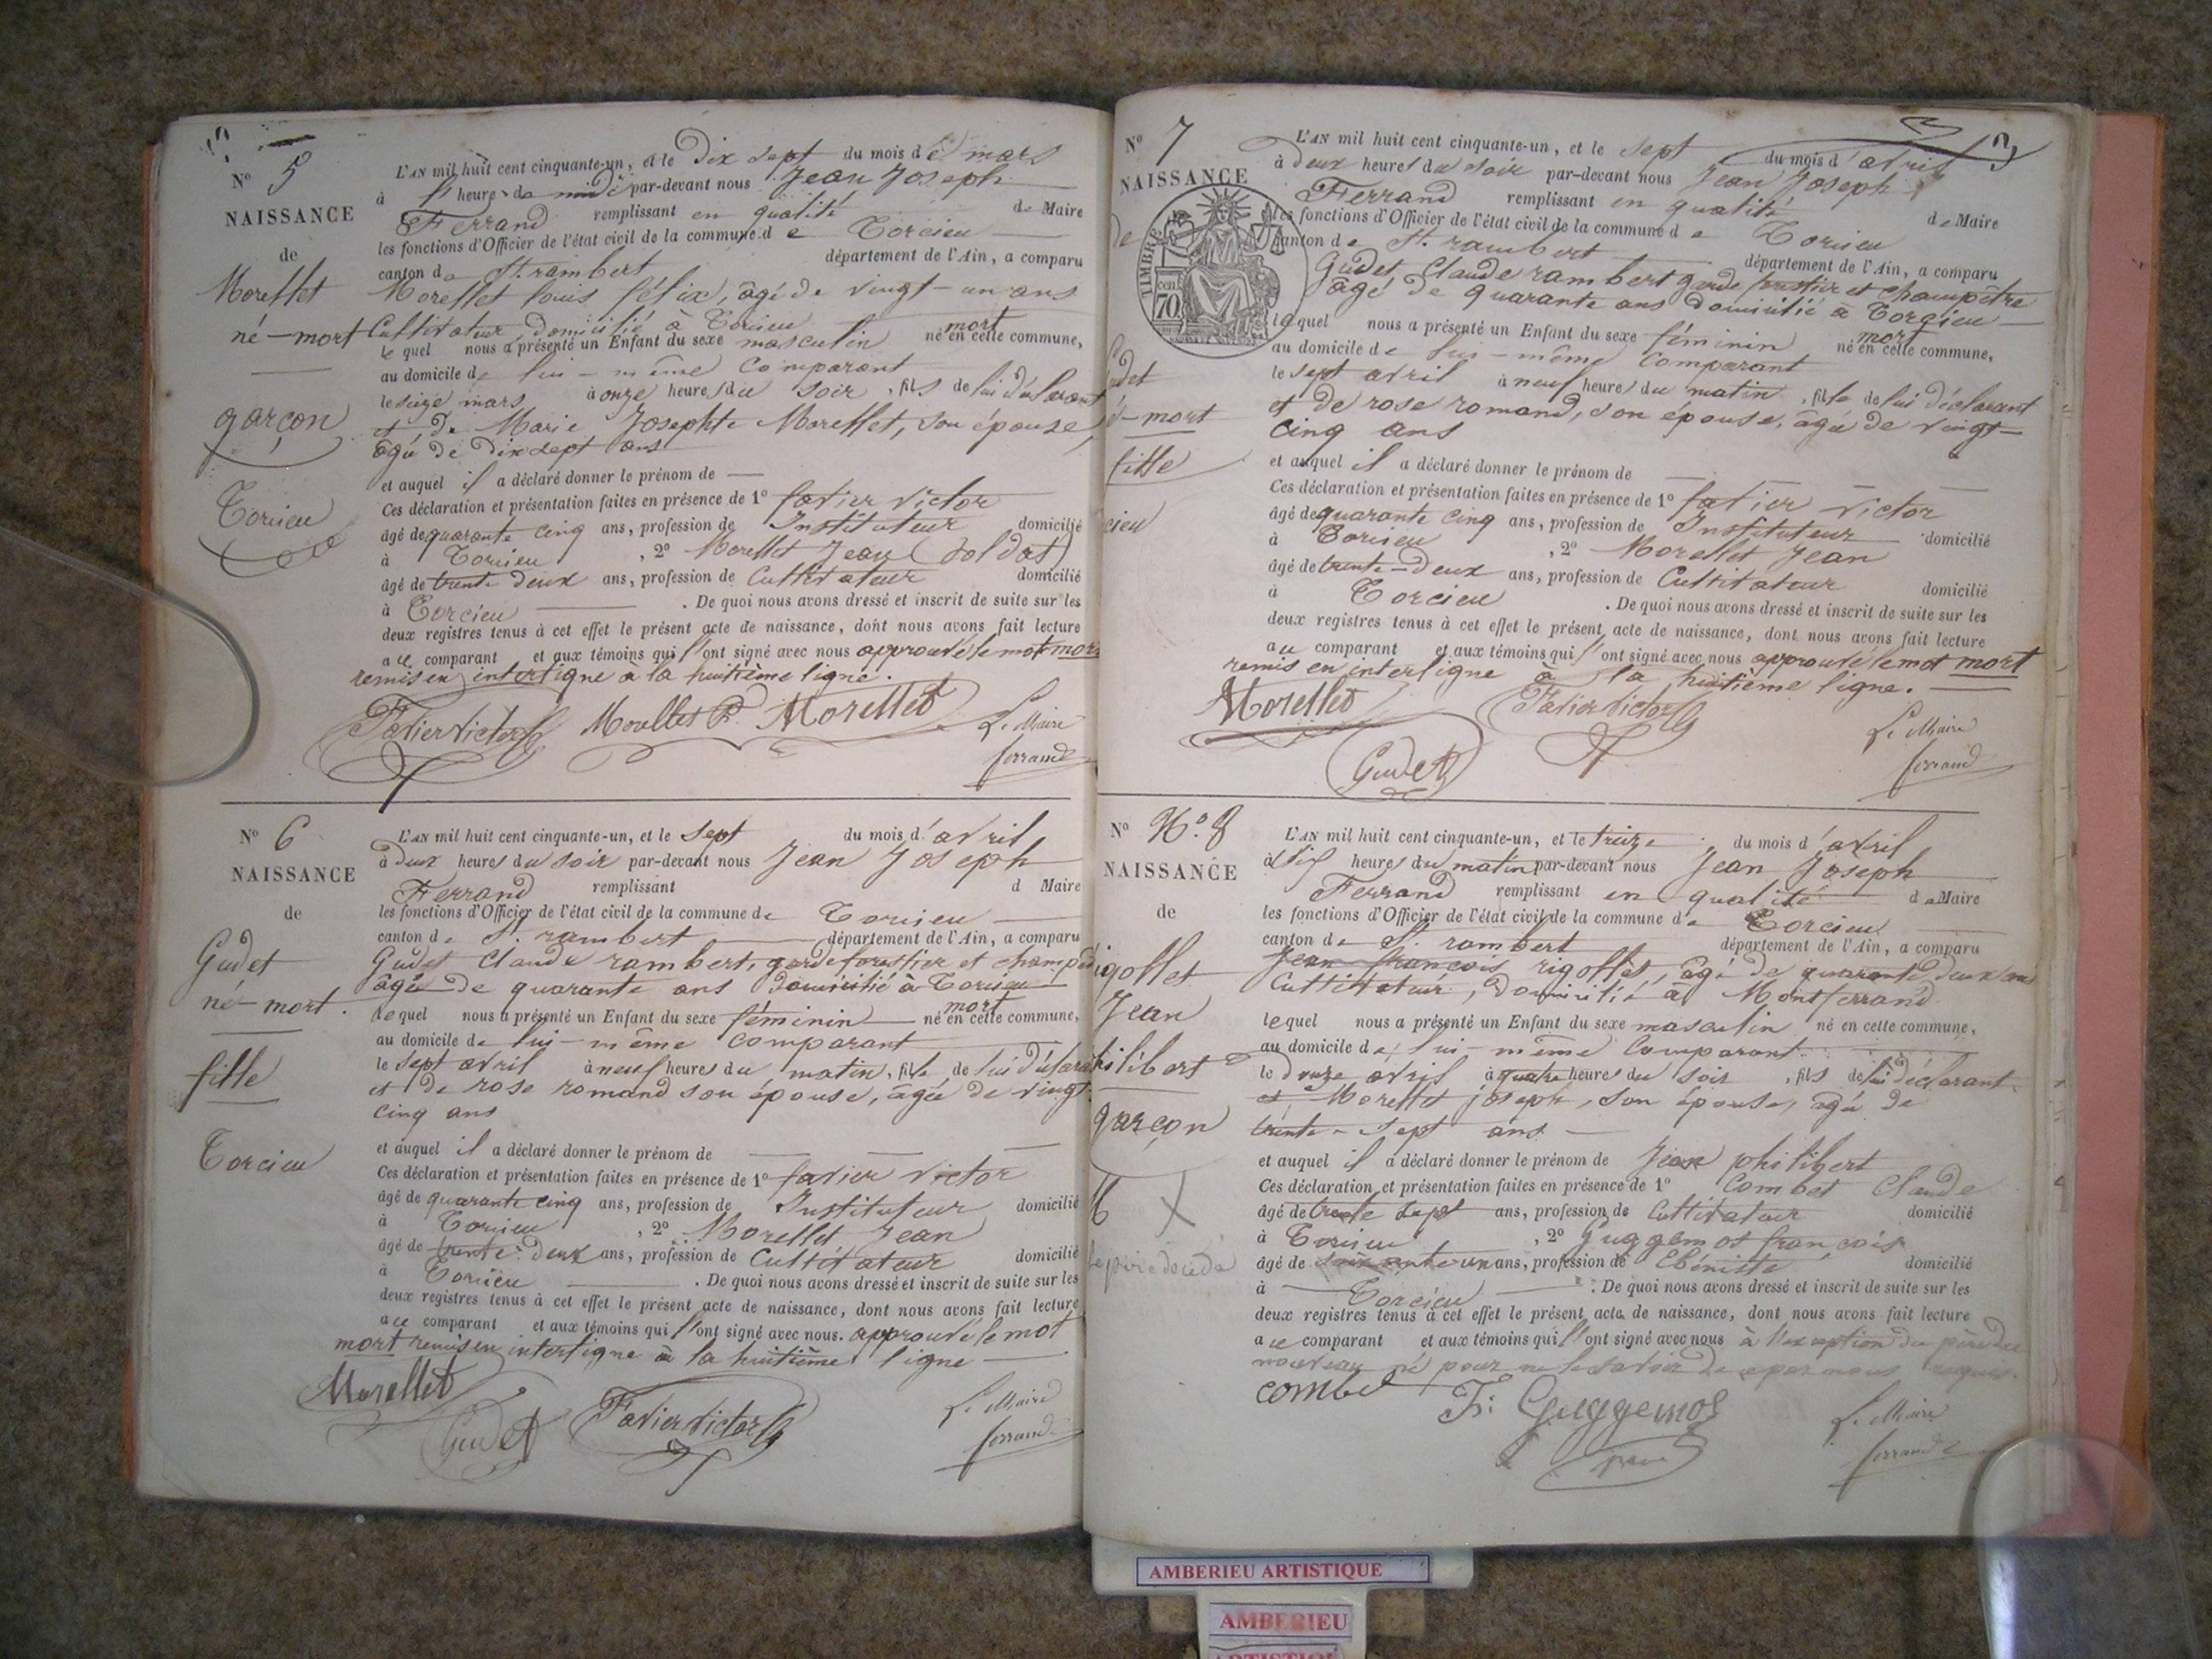 N° 5
NAISSANCE
de
Morellet
né-mort
garçon
Torcieu
L'AN mil huit cent cinquante-un, et le Dix sept du mois de mars
à heure de midi par-devant nous Jean Joseph
Ferrand remplissant en qualité de Maire
les fonctions d'Officier de l'état civil de la commune de Torcieu
canton de St. rambert département de l'Ain, a comparu
Morellet louis félix, âgé de vingt-un ans
Cultivateur domicilié à Torcieu
mort
le quel nous a présenté un Enfant du sexe masculin né en cette commune,
au domicile de lui-même Comparant
le seize mars à onze heures du soir, fils de lui déclarant
et de Marie Josephte Morellet, son épouse,
âgée de dix sept ans
et auquel il a déclaré donner le prénom de —
Ces déclaration et présentation faites en présence de 1° favier victor
âgé de quarante cinq ans, profession de Instituteur domicilié
à Torcieu, 2° Morellet Jean (soldat)
âgé de trente deux ans, profession de Cultivateur domicilié
à Torcieu . De quoi nous avons dressé et inscrit de suite sur les
deux registres tenus à cet effet le présent acte de naissance, dont nous avons fait lecture
au comparant et aux témoins qui l'ont signé avec nous approuvé le mot mort
remis en interligne à la huitième ligne.
Favier Victor Morellet Le Maire
ferrand
N° 6
NAISSANCE
de
Gudet
né-mort.
fille
Torcieu
L'AN mil huit cent cinquante-un, et le sept du mois d'avril
à deux heures du soir par-devant nous Jean Joseph
Ferrand remplissant d Maire
les fonctions d'Officier de l'état civil de la commune de Torcieu
canton de St. rambert département de l'Ain, a comparu
Gudet Claude rambert, garde forestier et champê
âgé de quarante ans domicilié à Torcieu
mort
lequel nous a présenté un Enfant du sexe féminin né en cette commune,
au domicile de lui-même comparant
le sept avril à neuf heures du matin, fille de lui déclarant
et de rose romand son épouse, âgée de vingt
cinq ans
et auquel il a déclaré donner le prénom de —
Ces déclaration et présentation faites en présence de 1° favier victor
âgé de quarante cinq ans, profession de Instituteur domicilié
à Torcieu, 2° Morellet Jean
âgé de trente-deux ans, profession de Cultivateur domicilié
à Torcieu . De quoi nous avons dressé et inscrit de suite sur les
deux registres tenus à cet effet le présent acte de naissance, dont nous avons fait lecture
au comparant et aux témoins qui l'ont signé avec nous. approuvé le mot
mort remis en interligne à la huitième ligne
Morellet Gudet Favier Victor Le Maire
ferrand
N° 7
NAISSANCE
de
TIMBRE
70 cent
udet
é-mort
fille
cieu
L'AN mil huit cent cinquante-un, et le sept du mois d'avril
à deux heures du soir par-devant nous Jean Joseph
Ferrand remplissant en qualité de Maire
les fonctions d'Officier de l'état civil de la commune de Torcieu
canton de St. rambert département de l'Ain, a comparu
Gudet Claude rambert garde forestier et champêtre
âgé de quarante ans domicilié à Torcieu
mort
lequel nous a présenté un Enfant du sexe féminin né en cette commune,
au domicile de lui-même Comparant
le sept avril à neuf heures du matin, fille de lui déclarant
et de rose romand, son épouse, âgée de vingt-
cinq ans
et auquel il a déclaré donner le prénom de —
Ces déclaration et présentation faites en présence de 1° favier victor
âgé de quarante cinq ans, profession de Instituteur domicilié
à Torcieu, 2° Morellet Jean
âgé de trente-deux ans, profession de Cultivateur domicilié
à Torcieu . De quoi nous avons dressé et inscrit de suite sur les
deux registres tenus à cet effet le présent acte de naissance, dont nous avons fait lecture
au comparant et aux témoins qui l'ont signé avec nous approuvé le mot mort
remis en interligne à la huitième ligne.
Morellet Favier Victor Le Maire
Gudet ferrand
N° N°. 8
NAISSANCE
de
igollet
Jean
hilibert
garçon
L'AN mil huit cent cinquante-un, et le treize du mois d'avril
à six heures du matin par-devant nous Jean Joseph
Ferrand remplissant en qualité de Maire
les fonctions d'Officier de l'état civil de la commune de Torcieu
canton de St. rambert département de l'Ain, a comparu
Jean françois rigollet, âgé de quarante deux ans
Cultivateur, domicilié à Montferrand
lequel nous a présenté un Enfant du sexe masculin né en cette commune,
au domicile de lui-même Comparant
le douze avril à quatre heures du soir, fils de lui déclarant
et Morellet joseph, son épouse, âgée de
trente-sept ans
et auquel il a déclaré donner le prénom de Jean philibert
Ces déclaration et présentation faites en présence de 1° Combet Claude
âgé de trente sept ans, profession de Cultivateur domicilié
à Torcieu, 2° Guggemos françois
âgé de soixante-un ans, profession de Ebéniste domicilié
à Torcieu . De quoi nous avons dressé et inscrit de suite sur les
deux registres tenus à cet effet le présent acte de naissance, dont nous avons fait lecture
au comparant et aux témoins qui l'ont signé avec nous à l'exception du père du
nouveau né pour ne le savoir de ce par nous requis.
combet F. Guggemos Le Maire
ferrand
AMBERIEU ARTISTIQUE
AMBERIEU
ARTISTIQUE